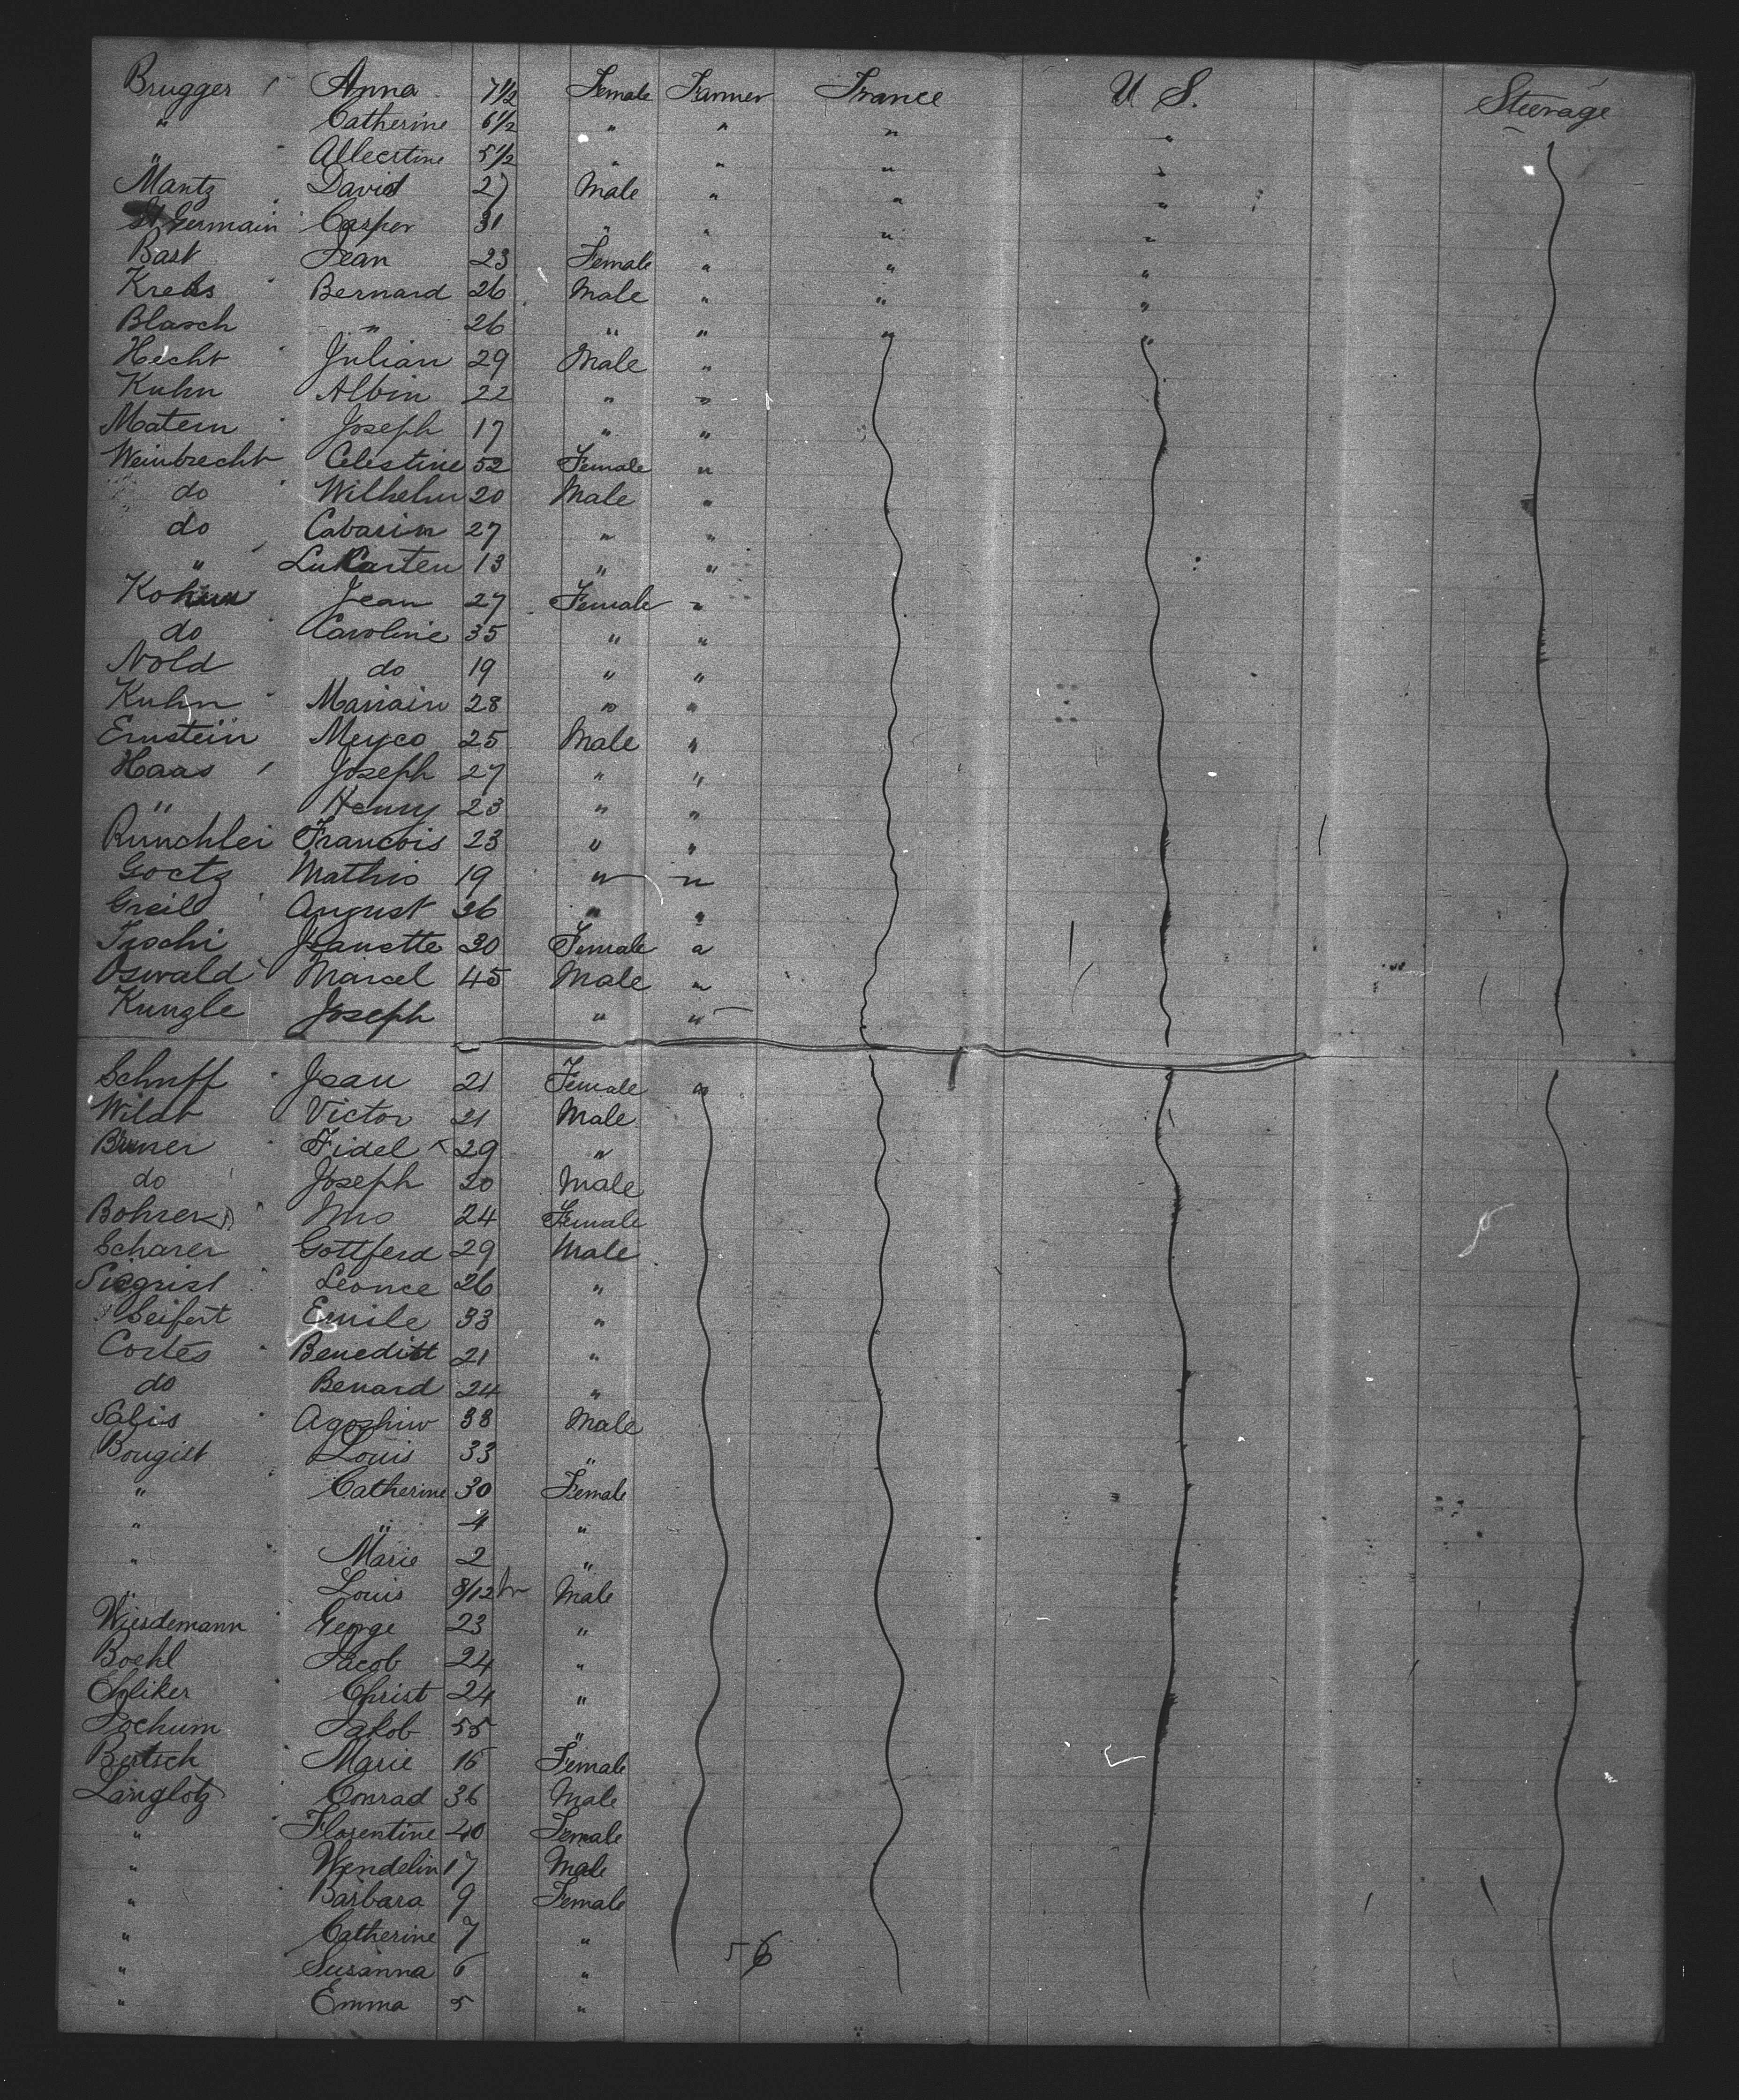 Brugger Anna 7 1/2 Female Farmer France U S. Steerage
" Catherine 6 1/2 " " " "
" Albertine 5 1/2 " " " "
Mantz David 27 Male " " "
St Germain Casper 31 " " " "
Bast Jean 23 Female " " "
Krebs Bernard 26 Male " " "
Blasch " 26 " " " "
Hecht Julian 29 Male "
Kuhn Albin 22 " "
Matern Joseph 17 " "
Weinbrecht Celestine 52 Female "
do Wilhelm 20 Male "
do Cabarin 27 " "
" 13 " "
Jean 27 Female "
do Caroline 35 " "
Nold do 19 " "
Kuhn Mariain 28 " "
Ernstein Meyco 25 Male "
Haas Joseph 27 " "
" Henry 23 " "
Runchlei Francois 23 " "
Goetz Mathis 19 " "
Greil August 36 " "
Jeanette 30 Female "
Oswald Marcel 45 Male "
Kungle Joseph " "
Schuff Jean 21 Female "
Wildt Victor 21 Male
Bruner Fidel 29 "
do Joseph 20 Male
Bohrer Mrs 24 Female
Scharer Gottferd 29 Male
Siegrist Leonce 26 "
Seifert Emile 33 "
Cortes Beneditt 21 "
do Benard 24 "
Salis 38 Male
Bougist Louis 33 "
" Catherine 30 Female
" " 4 "
" Marie 2 "
Louis 8/12 Male
Wiesdemann George 23 "
Boehl Jacob 24 "
Ehliker Christ 24 "
Jochum Jakob 55 "
Bertsch Marie 16 Female
Langlotz Conrad 36 Male
" Florentine 40 Female
" Wendelin 17 Male
" Barbara 9 Female
" Catherine 7 " 56
" Susanna 6 "
" Emma 5 "